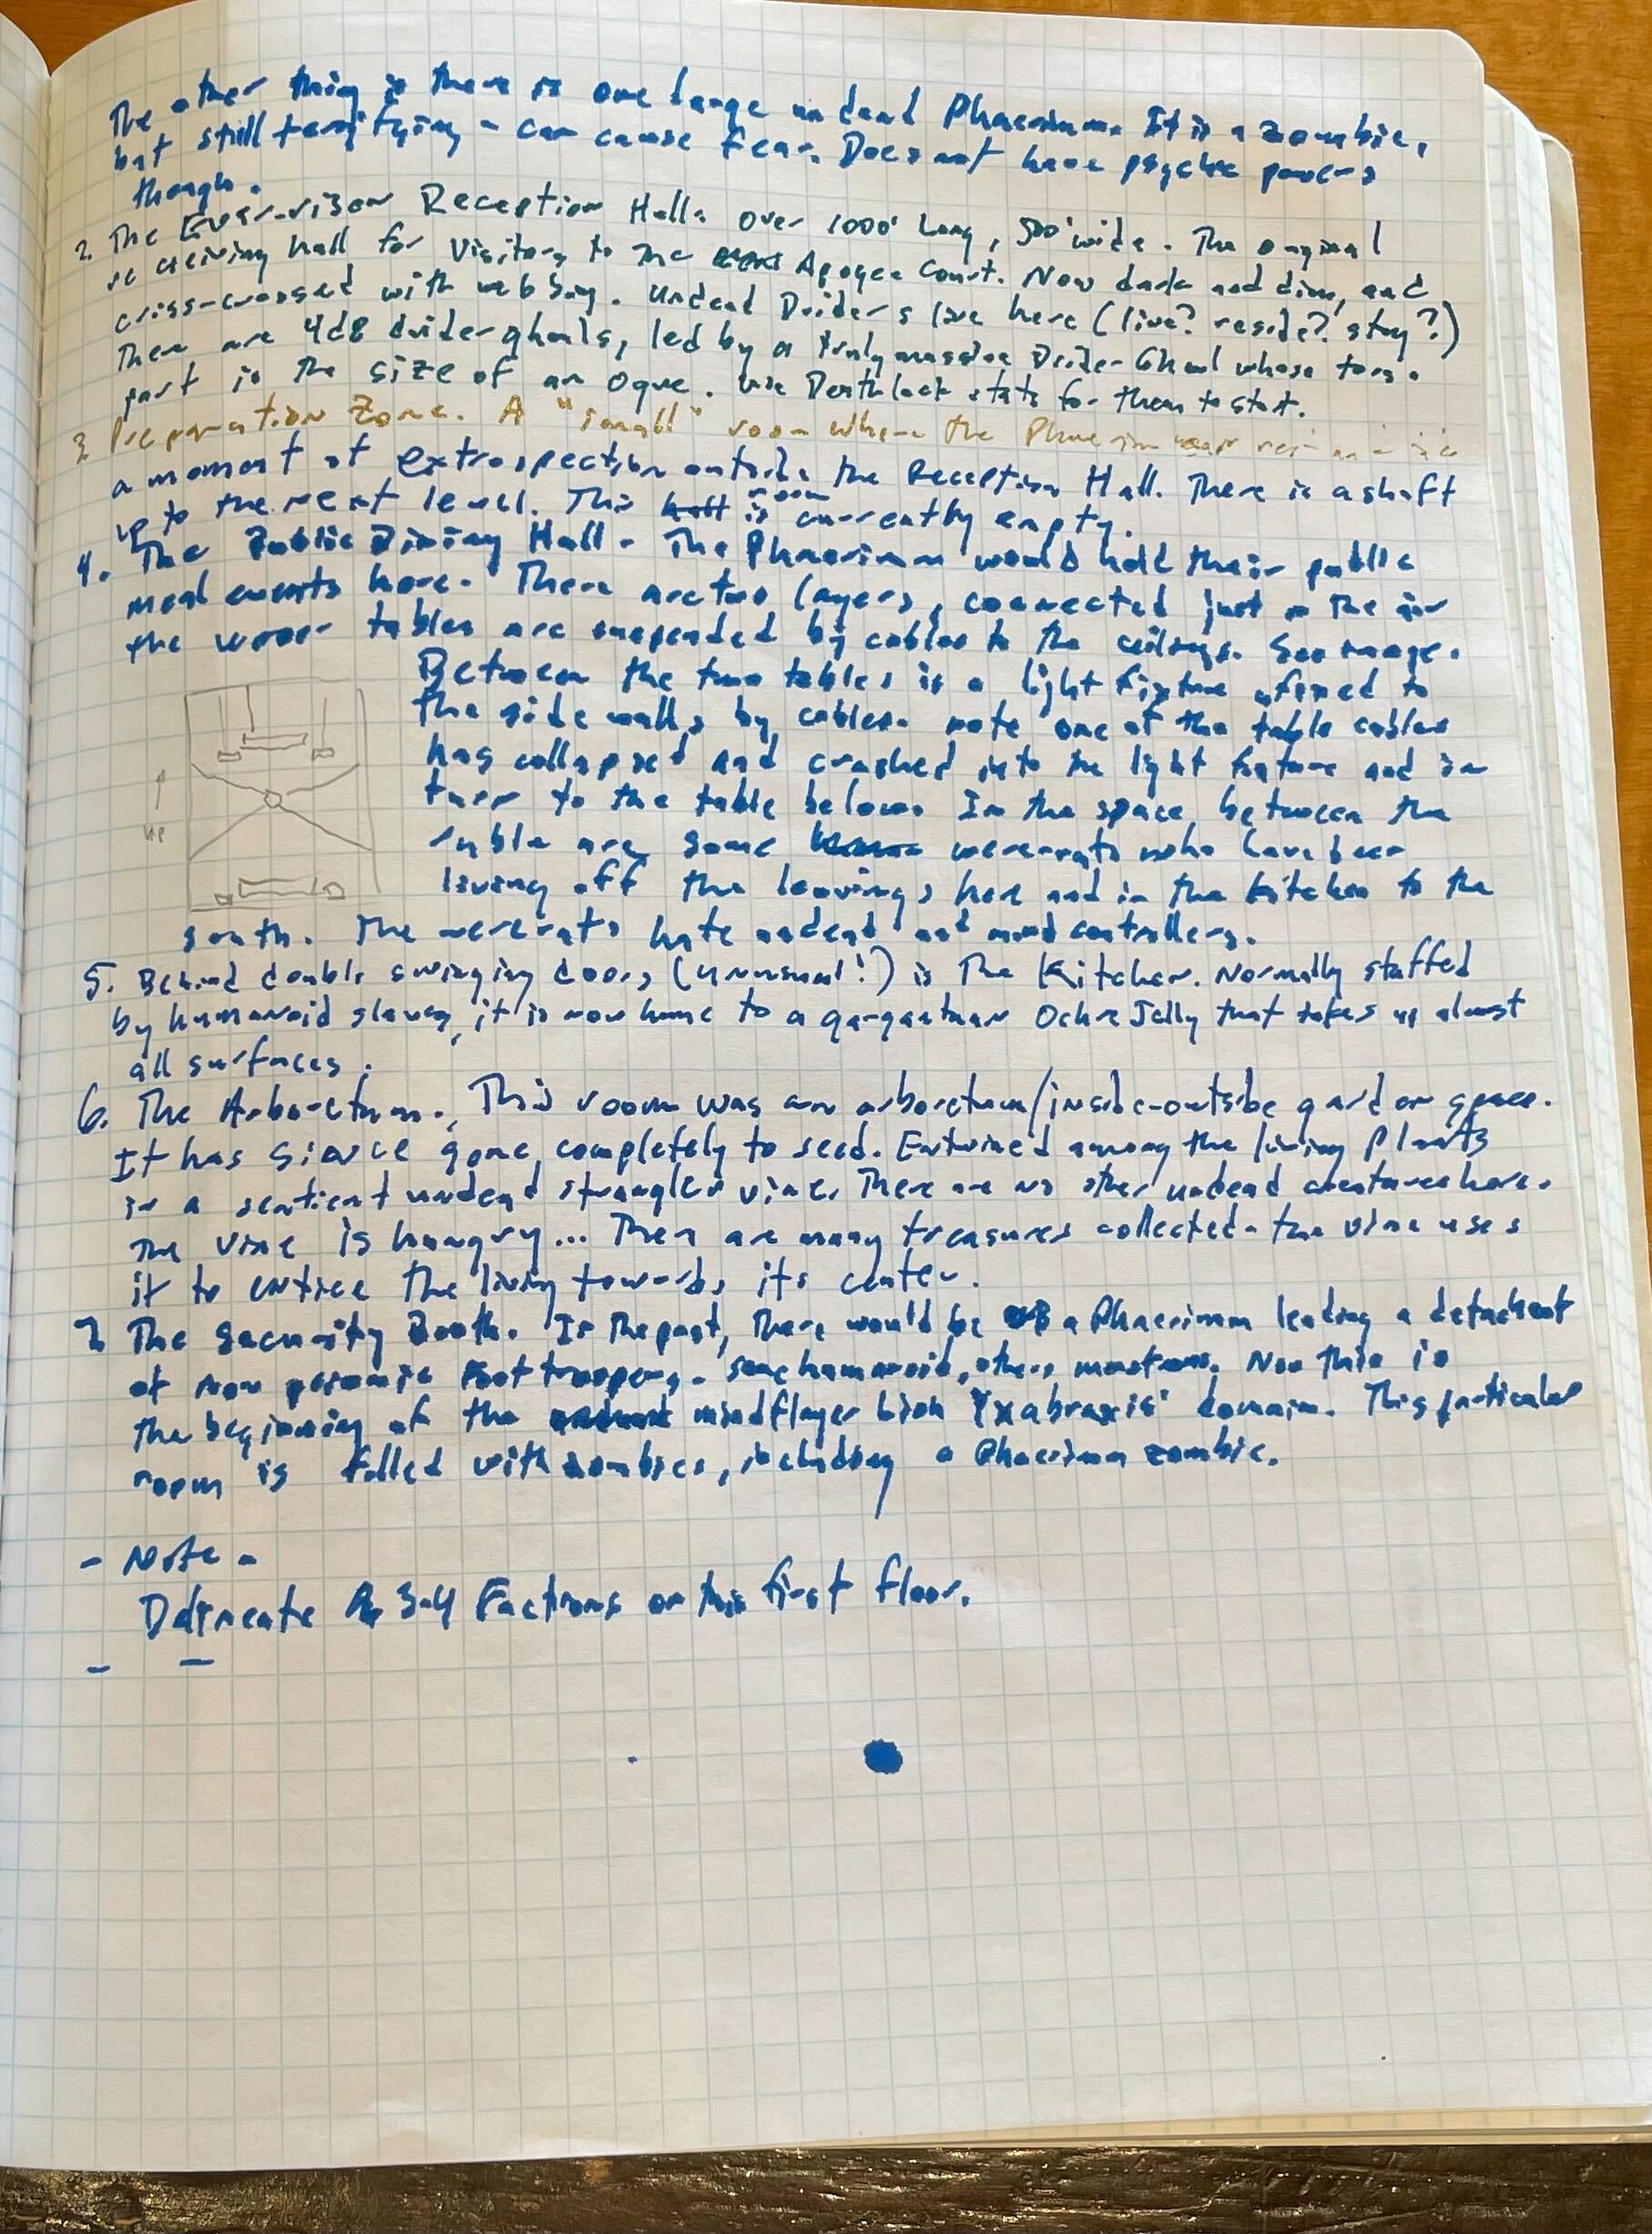 The other thing is there is one large undead Phaerimm. It is a zombie,
but still terrifying - can cause fear. Does not have psychic powers
though.
2. The Reception Hall. Over 1000' Long, 500' wide. The original
receiving hall for Visitors to the Apogee Court. Now dark and dim, and
criss-crossed with webbing. Undead Driders live here (live? reside? stay?)
There are 4d8 drider ghouls, led by a truly massive Drider-Ghoul whose torso
part is the size of an Ogre. Use Deathlock stats for them to start.
3. Preparation Zone. A "small" room where the Phaerimm
a moment of extrospection outside the Reception Hall. There is a shaft
up to the next level. This room is currently empty.
4. The Public Dining Hall - The Phaerimm would hold their public
meal events here. There are two layers, connected just in the air
the upper tables are suspended by cables to the ceilings. See image.
Between the two tables is a light fixture affixed to
the side walls by cables. Note one of the table cables
has collapsed and crashed into the light fixture and in
turn to the table below. In the space between the
ruble are some wererats who have been
living off the leavings here and in the kitchen to the
up
south. The wererats hate undead and mind controllers.
5. Behind double swinging doors (unusual!) is The Kitchen. Normally staffed
by humanoid slaves, it is now home to a gargantuan Ochre Jelly that takes up almost
all surfaces.
6. The Arboretum. This room was an arboretum/inside-outside garden space.
It has since gone completely to seed. Entwined among the living Plants
is a sentient undead strangler vine. There are no other undead creatures here.
The vine is hungry... There are many treasures collected - the vine uses
it to entice the living towards its center.
7. The Security Booth. In the past, there would be a Phaerimm leading a detachment
of non psionic foot troopers - some humanoid, others monstrous. Now this is
the beginning of the mindflayer lich Yxabraxis' domain. This particular
room is filled with zombies, including a Phaerimm zombie.
- Note -
Delineate 3-4 Factions on this first floor.
- -